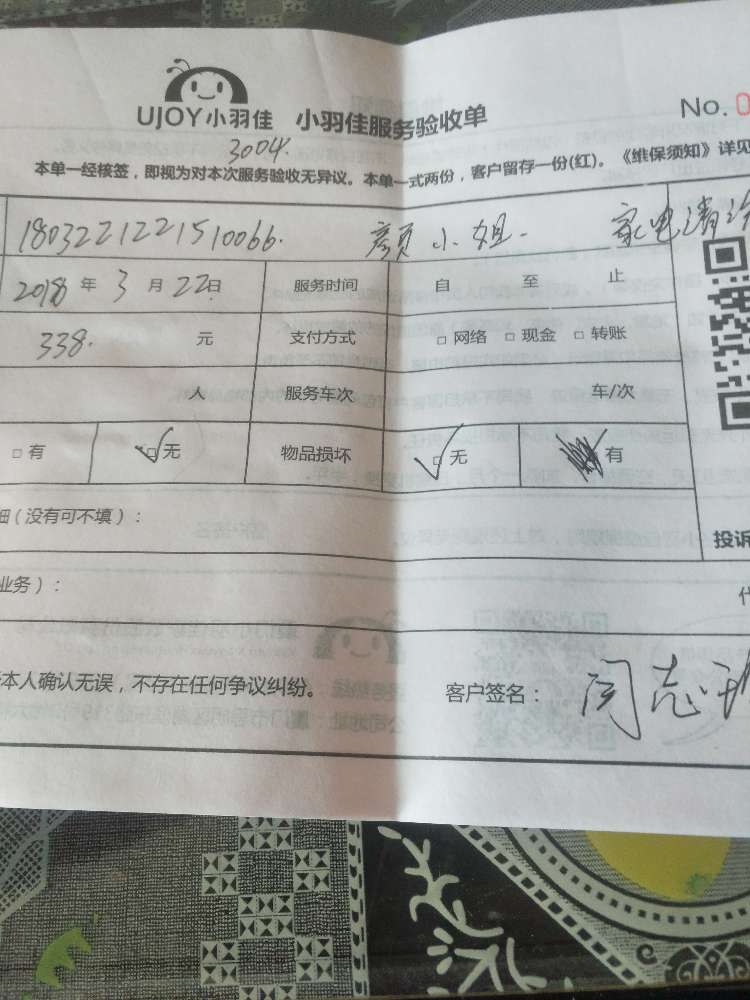 UJOY小羽佳 小羽佳服务验收单 No.0
3004.
本单一经核签，即视为对本次服务验收无异议。本单一式两份，客户留存一份(红)。《维保须知》详见
1803221221510066. 颜小姐. 家电清洗
2018年3月22日 服务时间 自 至 止
338. 元 支付方式 □网络 □现金 □转账
人 服务车次 车/次
□有 □无 物品损坏 □无 有
细（没有可不填）：
投诉
业务）：
本人确认无误，不存在任何争议纠纷。 客户签名：